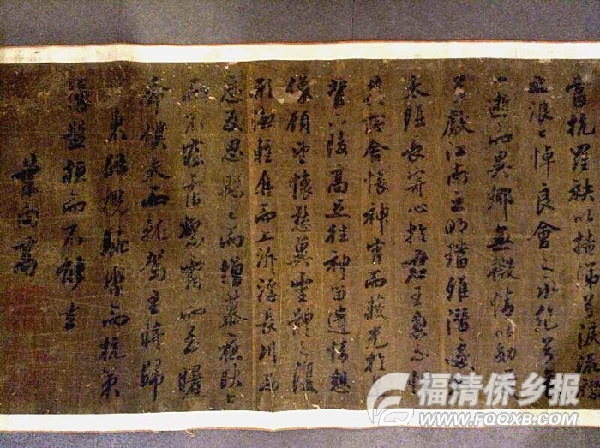 抗羅袂以掩涕兮淚流襟
之浪々悼良會之永絕兮哀
一逝而異鄉無微情以效愛
兮獻江南之明璫雖潛處於
太陰長寄心於君王忽不悟
其所舍悵神宵而蔽光於是
背下陵高足往神留遺情想
像顧望懷愁冀靈體之復
形御輕舟而上泝浮長川而
忘反思緜々而增慕夜耿々
而不寐霑繁霜而至曙
命僕夫而就駕吾將歸
東路攬騑轡而抗策
悵盤桓而不能去
葉向高
福清侨乡报
WWW.FQQXB.COM